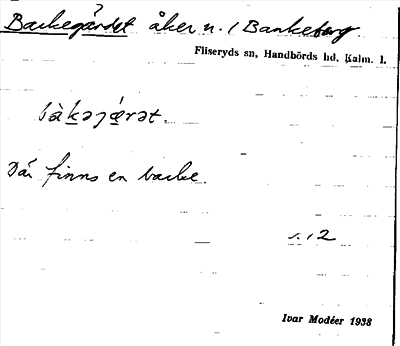 Backegärdet åker n. / Bankeberg
Fliseryds sn, Handbörds hd, Kalm. l.
bàkəjæ̀rət.
Där finns en backe.
s. 12
Ivar Modéer 1938